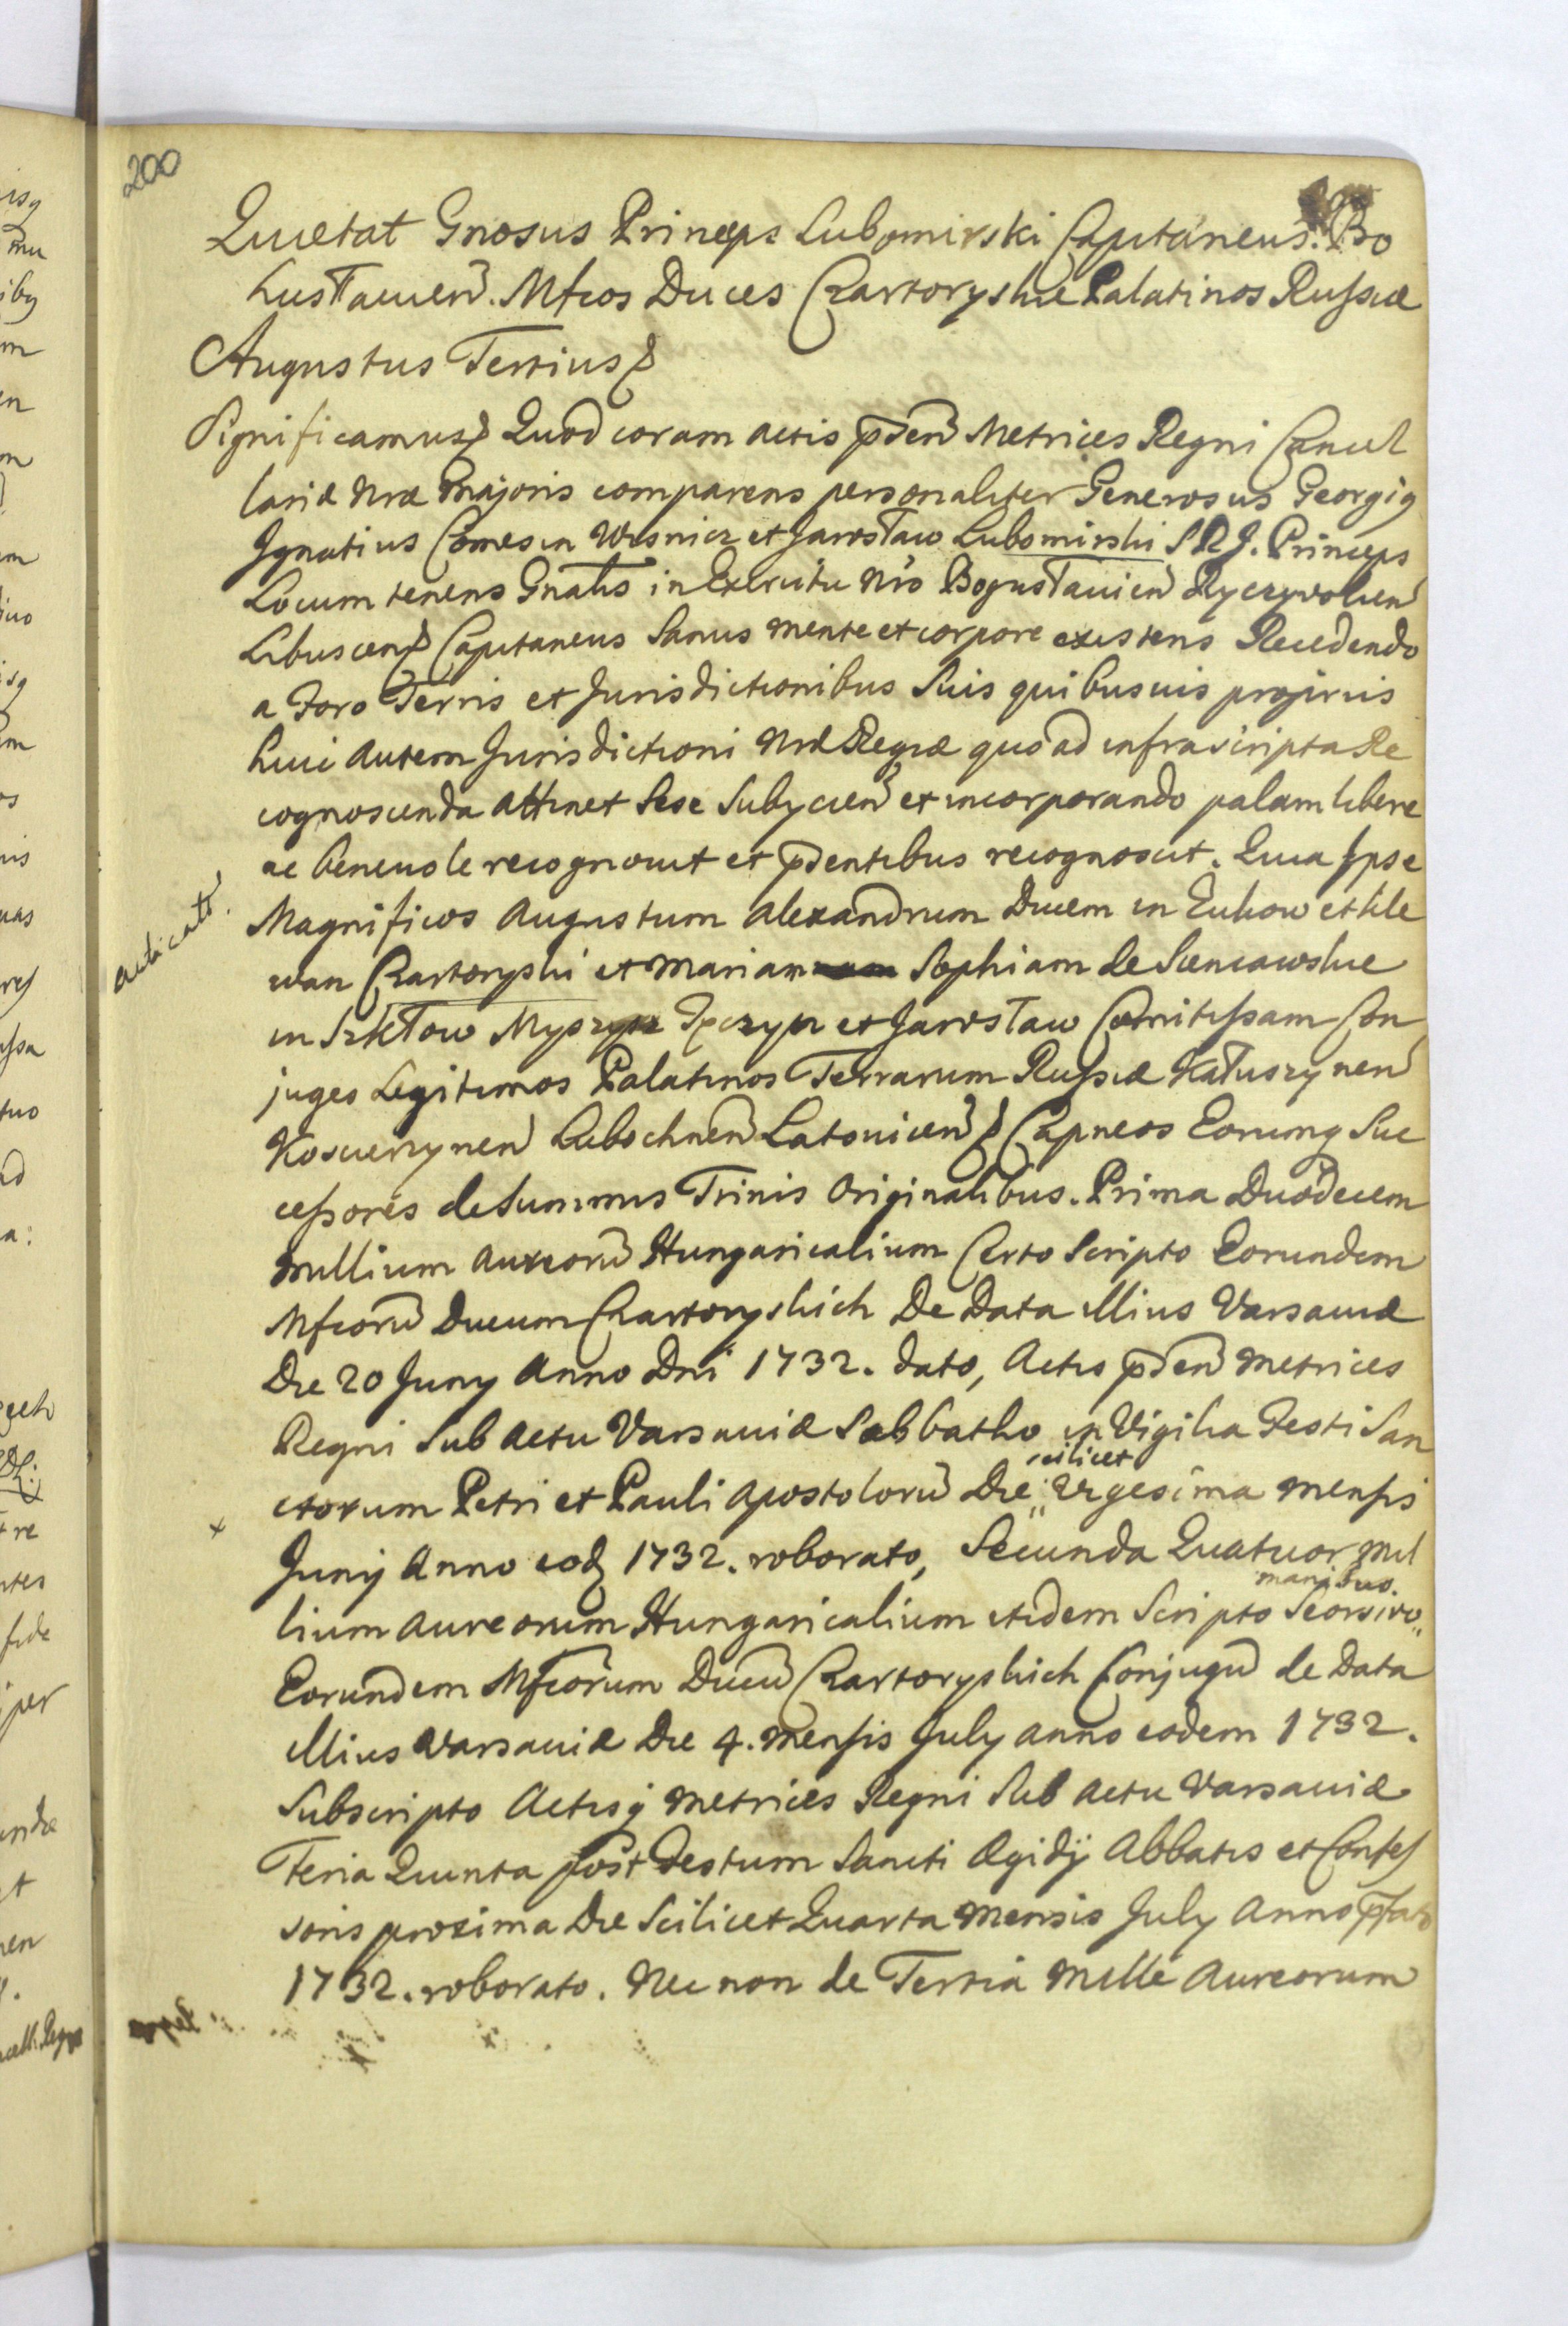 200
Quietat Gnosus Princeps Lubomirski Capitaneus Bo
husłauień. Mfcos Duces Czartoryskie Palatinos Russiæ
Augustus Tertius
Significamus Quod coram actis pñtiũ Metrices Regni Cancel
lariæ Nræ Majoris comparens personaliter Generosus Georgig
Ignatius Comes in Wisnicz et Jarosław Lubomirski S R J. Princeps
Locum tenens Gnatis in Exercitu Nro Bogusłauień Ryczywolień
Libuscen Capitaneus Sanus mente et corpore existens Recedendo
a Foro Terris et Jurisdictionibus Suis quibusuis proprijs
huic autem Jurisdictioni Næ Regiæ quo ad infrascripta Re
cognoscenda attinet Sese Subycień et incorporando palam libere
ac beneuole recognouit et pñtibus recognoscit. Quia Ipse
Magnificos Augustum Alexandrum Ducem in Zukow et Kle
wan Czartoryski et Mariam Sophiam de Sieniawskie
in Szkłow Mysz Tęczyn et Jarosław Comitissam Con
juges Legitimos Palatinos Terrarum Russiæ Kałuszyneñ
Koscierzyneñ Lubochneñ Latowicen Capneos Eorumq Suc
cessores de Summis Trinis Originalibus. Prima Duodecem
millium aureorũ Hungaricalium Certo Scripto Eorundem
Mfcorũ Ducum Czartoryskich De Data illius Varsauiæ
Die 20 Juny Anno Dni 1732. dato, Actis pñtiũ Metrices
Regni Sub actu Varsauiæ Sabbatho in Vigilia Festi San
scilicet
ctorum Petri et Pauli Apostolorũ Die Vigesima mensis
x
Junij Anno eodꝫ 1732. roborato, Secunda Quatuor mil
manibus
lium aureorum Hungaricalium itidem Scripto Seorsivo
Eorundem Mfcorum Ducũ Czartoryskich Conjugũ de Data
illius Varsauiæ Die 4. mensis July anno eodem 1732.
Subscripto Actisq Metrices Regni Sub actu Varsauiæ
Feria Quinta post Festum Sancti Ægidij Abbatis et Confes
soris proxima Die Scilicet Quarta Mensis July Anno pfato
1732. roborato. Nec non de Tertia Mille Aureorum